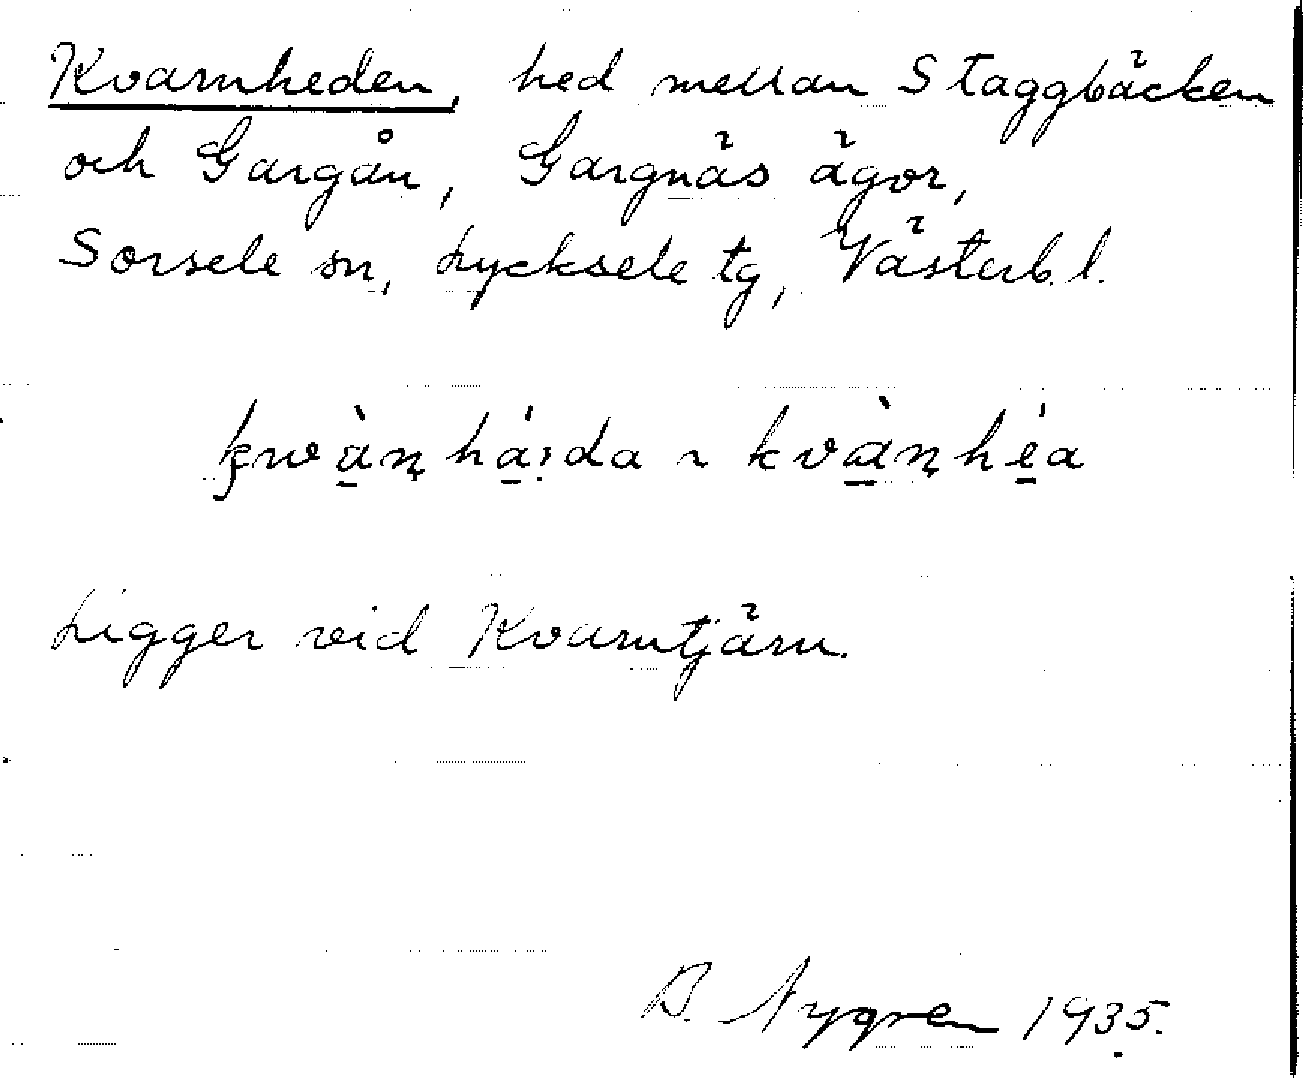 Kvarnheden, hed mellan Staggbäcken
och Gargån, Gargnäs ägor,
Sorsele sn, Lycksele tg, Västerb. l.
kwà̱ṇhá̱i̩da ~ kvà̱ṇhé̱a
Ligger vid Kvarntjärn.
B. Nygren 1935.